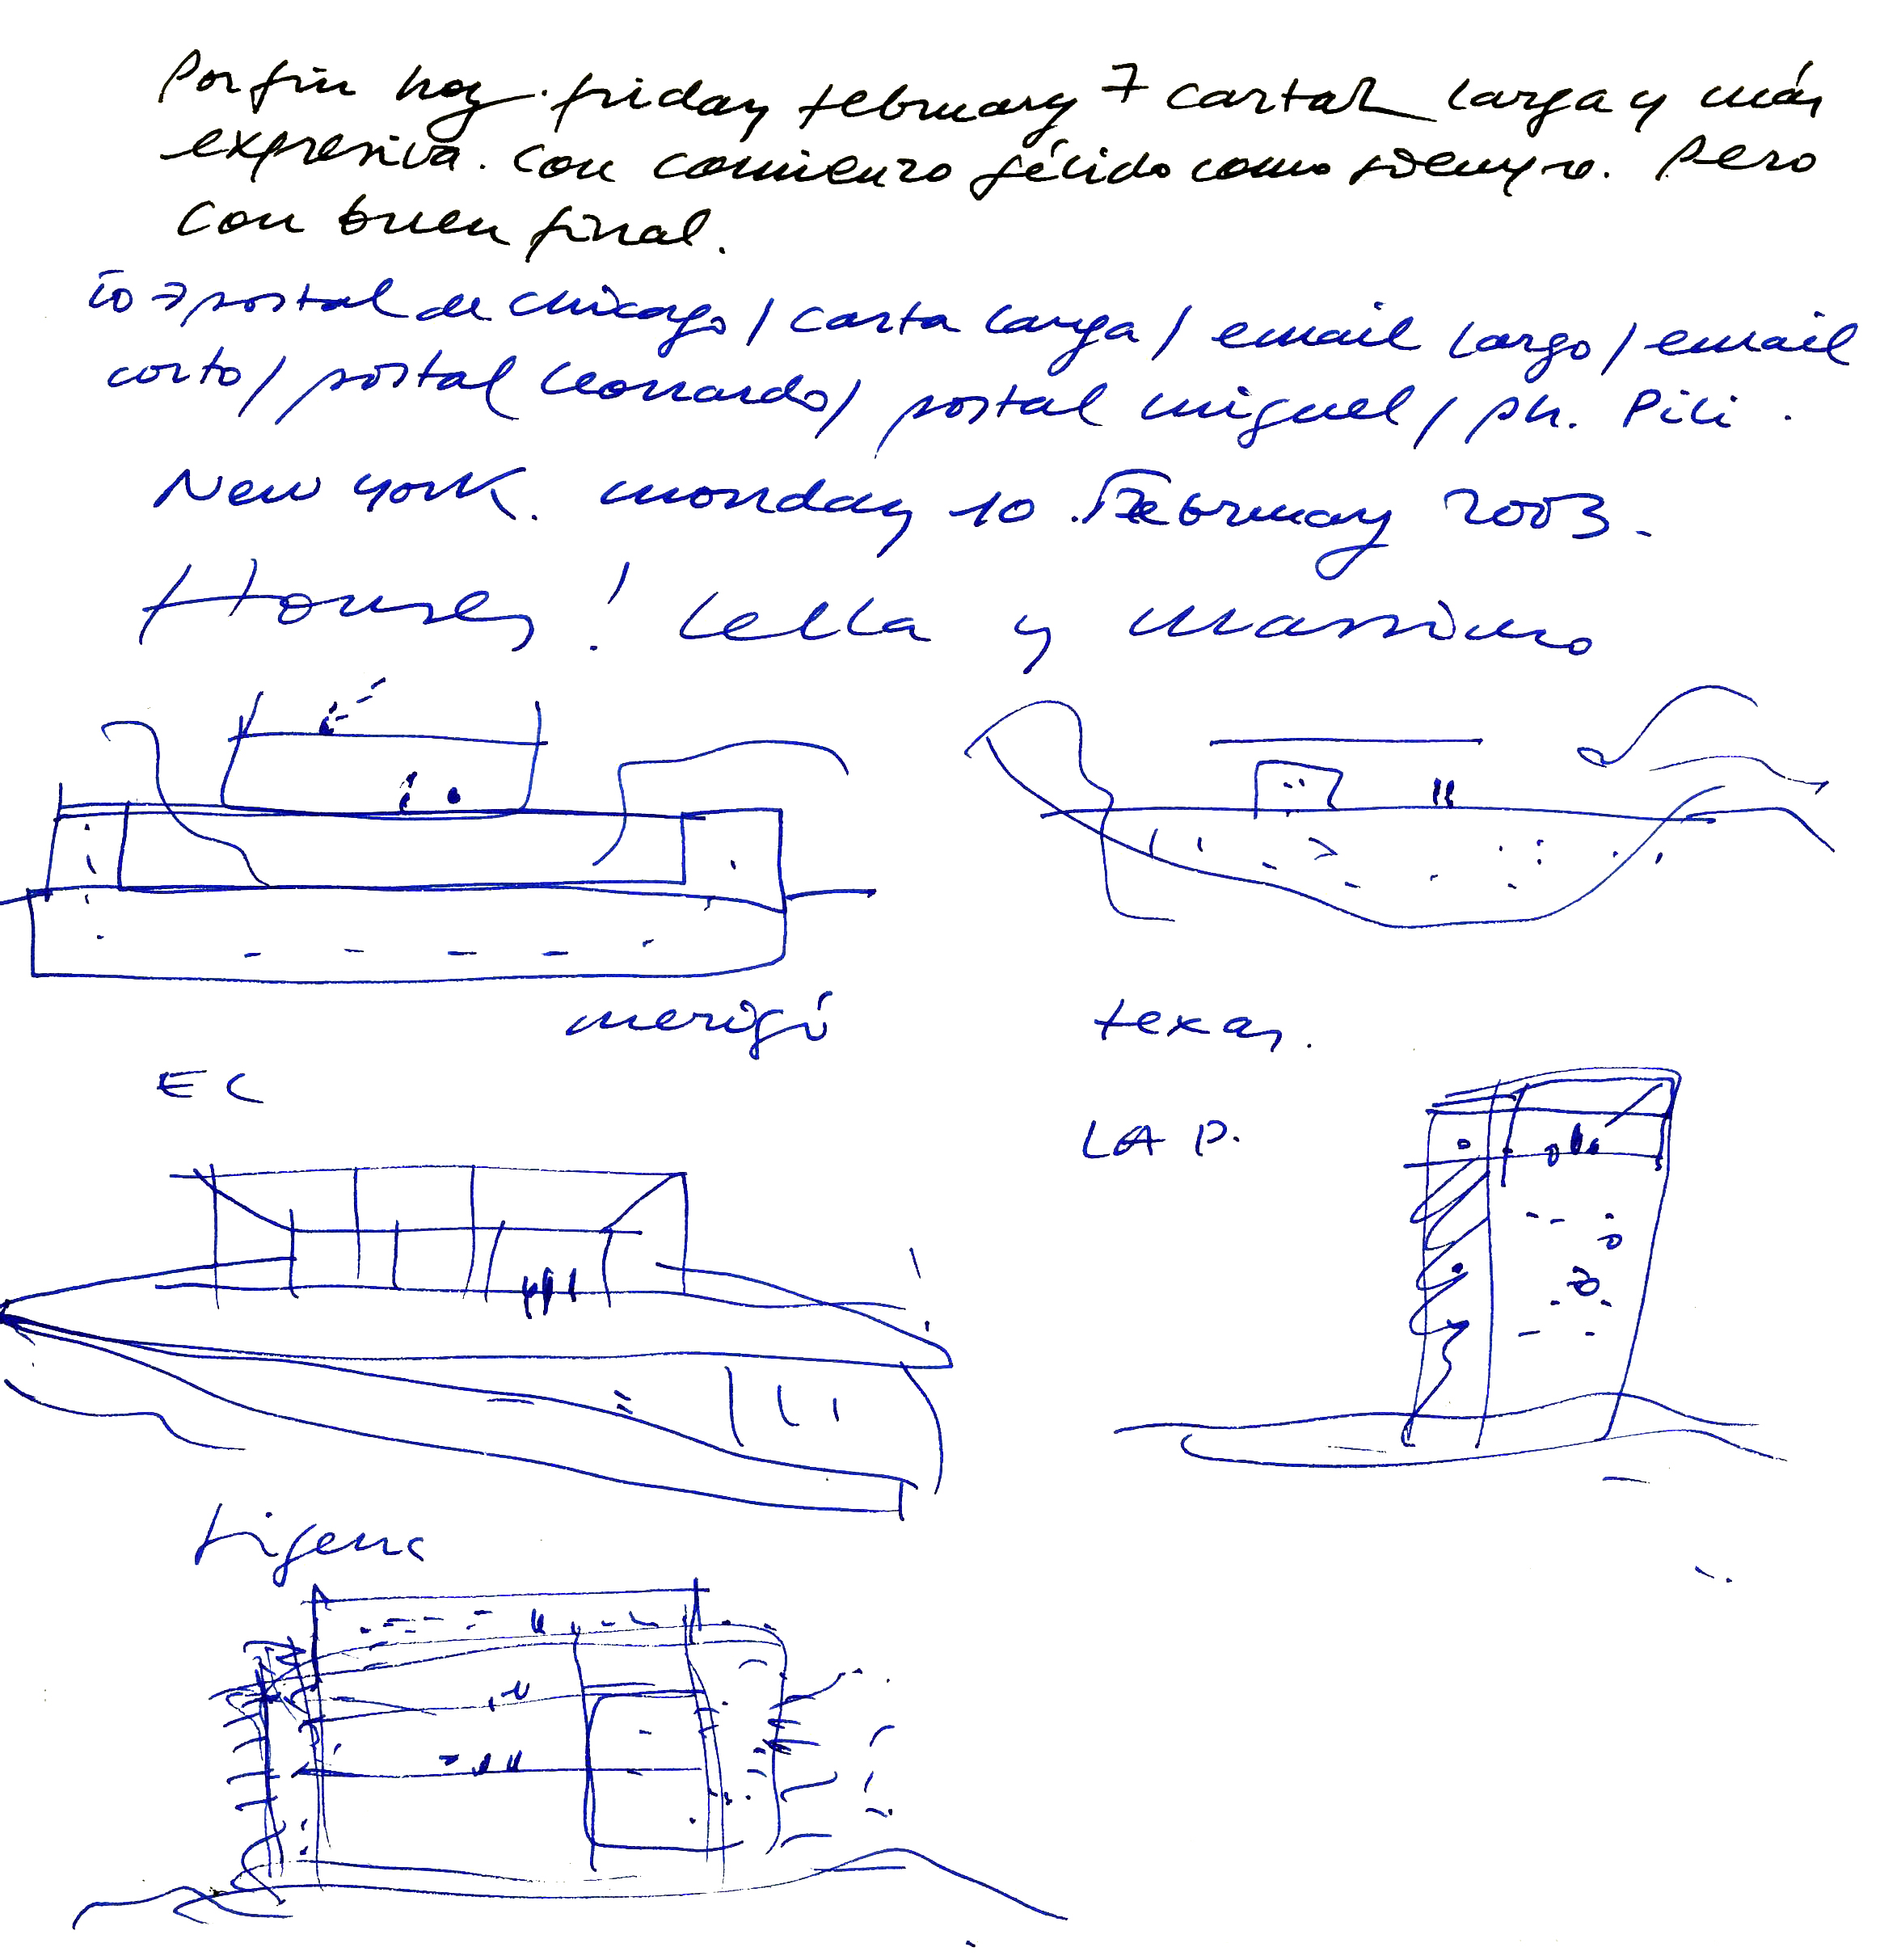 Por fin hoy. friday february 7 carta larga y más
expresiva. con comienzo gélido como siempre. Pero
con buen final.
to → postal de chicago / carta larga / email largo / email
corto / postal leonardo / postal miguel / ph. Pili.
New york. monday 10 February 2003.
Houses! Lella y massimo
merigó
texas.
EC
LA P.
tigerra